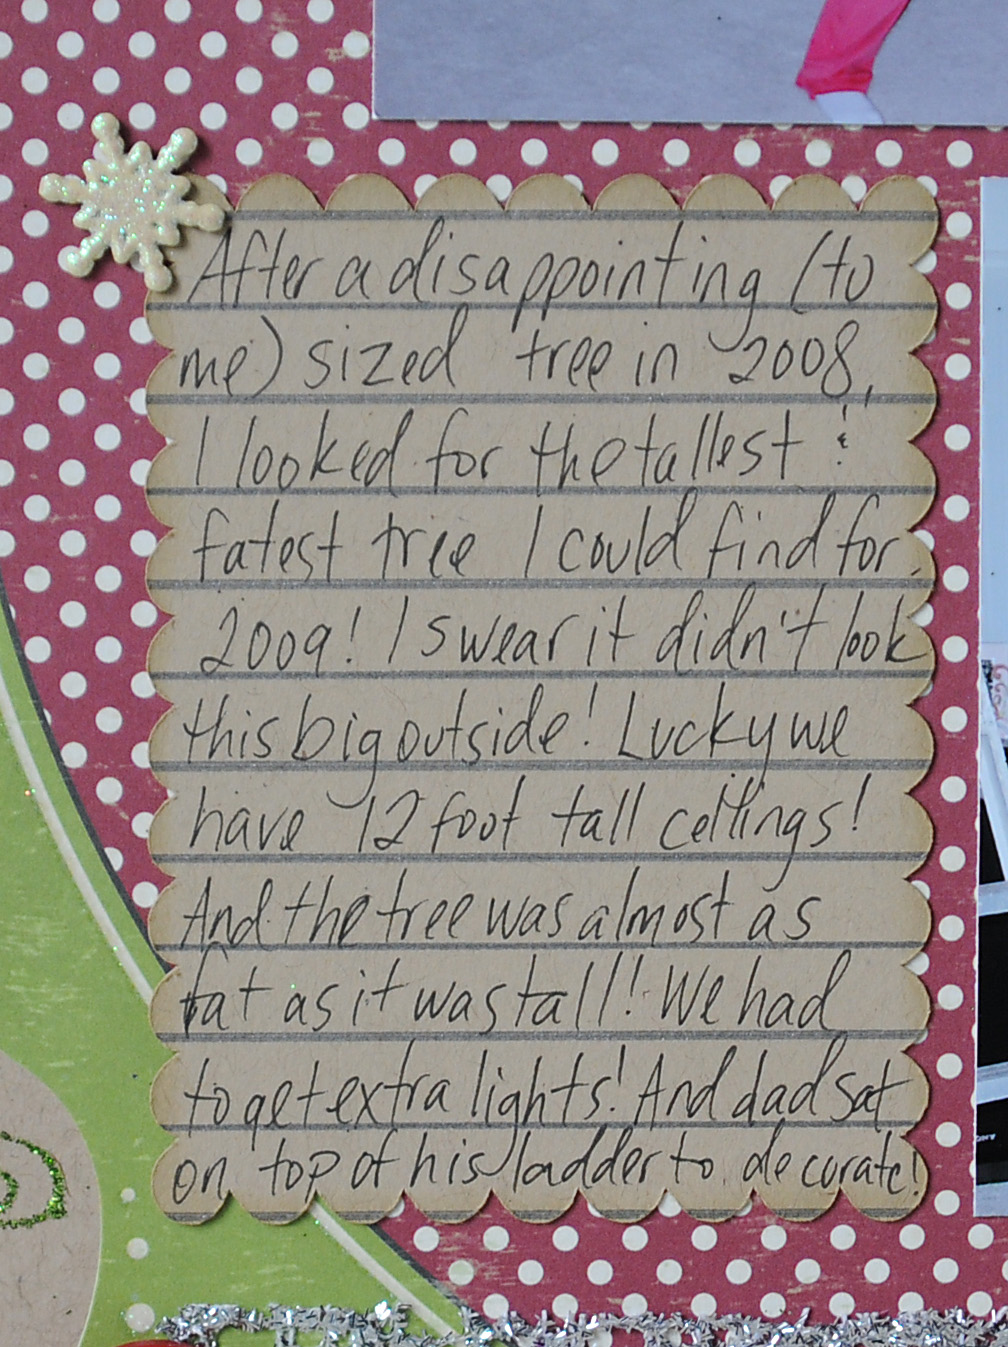 After a disappointing (to
me) sized tree in 2008,
I looked for the tallest &
fatest tree I could find for
2009! I swear it didn't look
this big outside! Lucky we
have 12 foot tall ceilings!
And the tree was almost as
fat as it was tall! We had
to get extra lights! And dad sat
on top of his ladder to decorate!